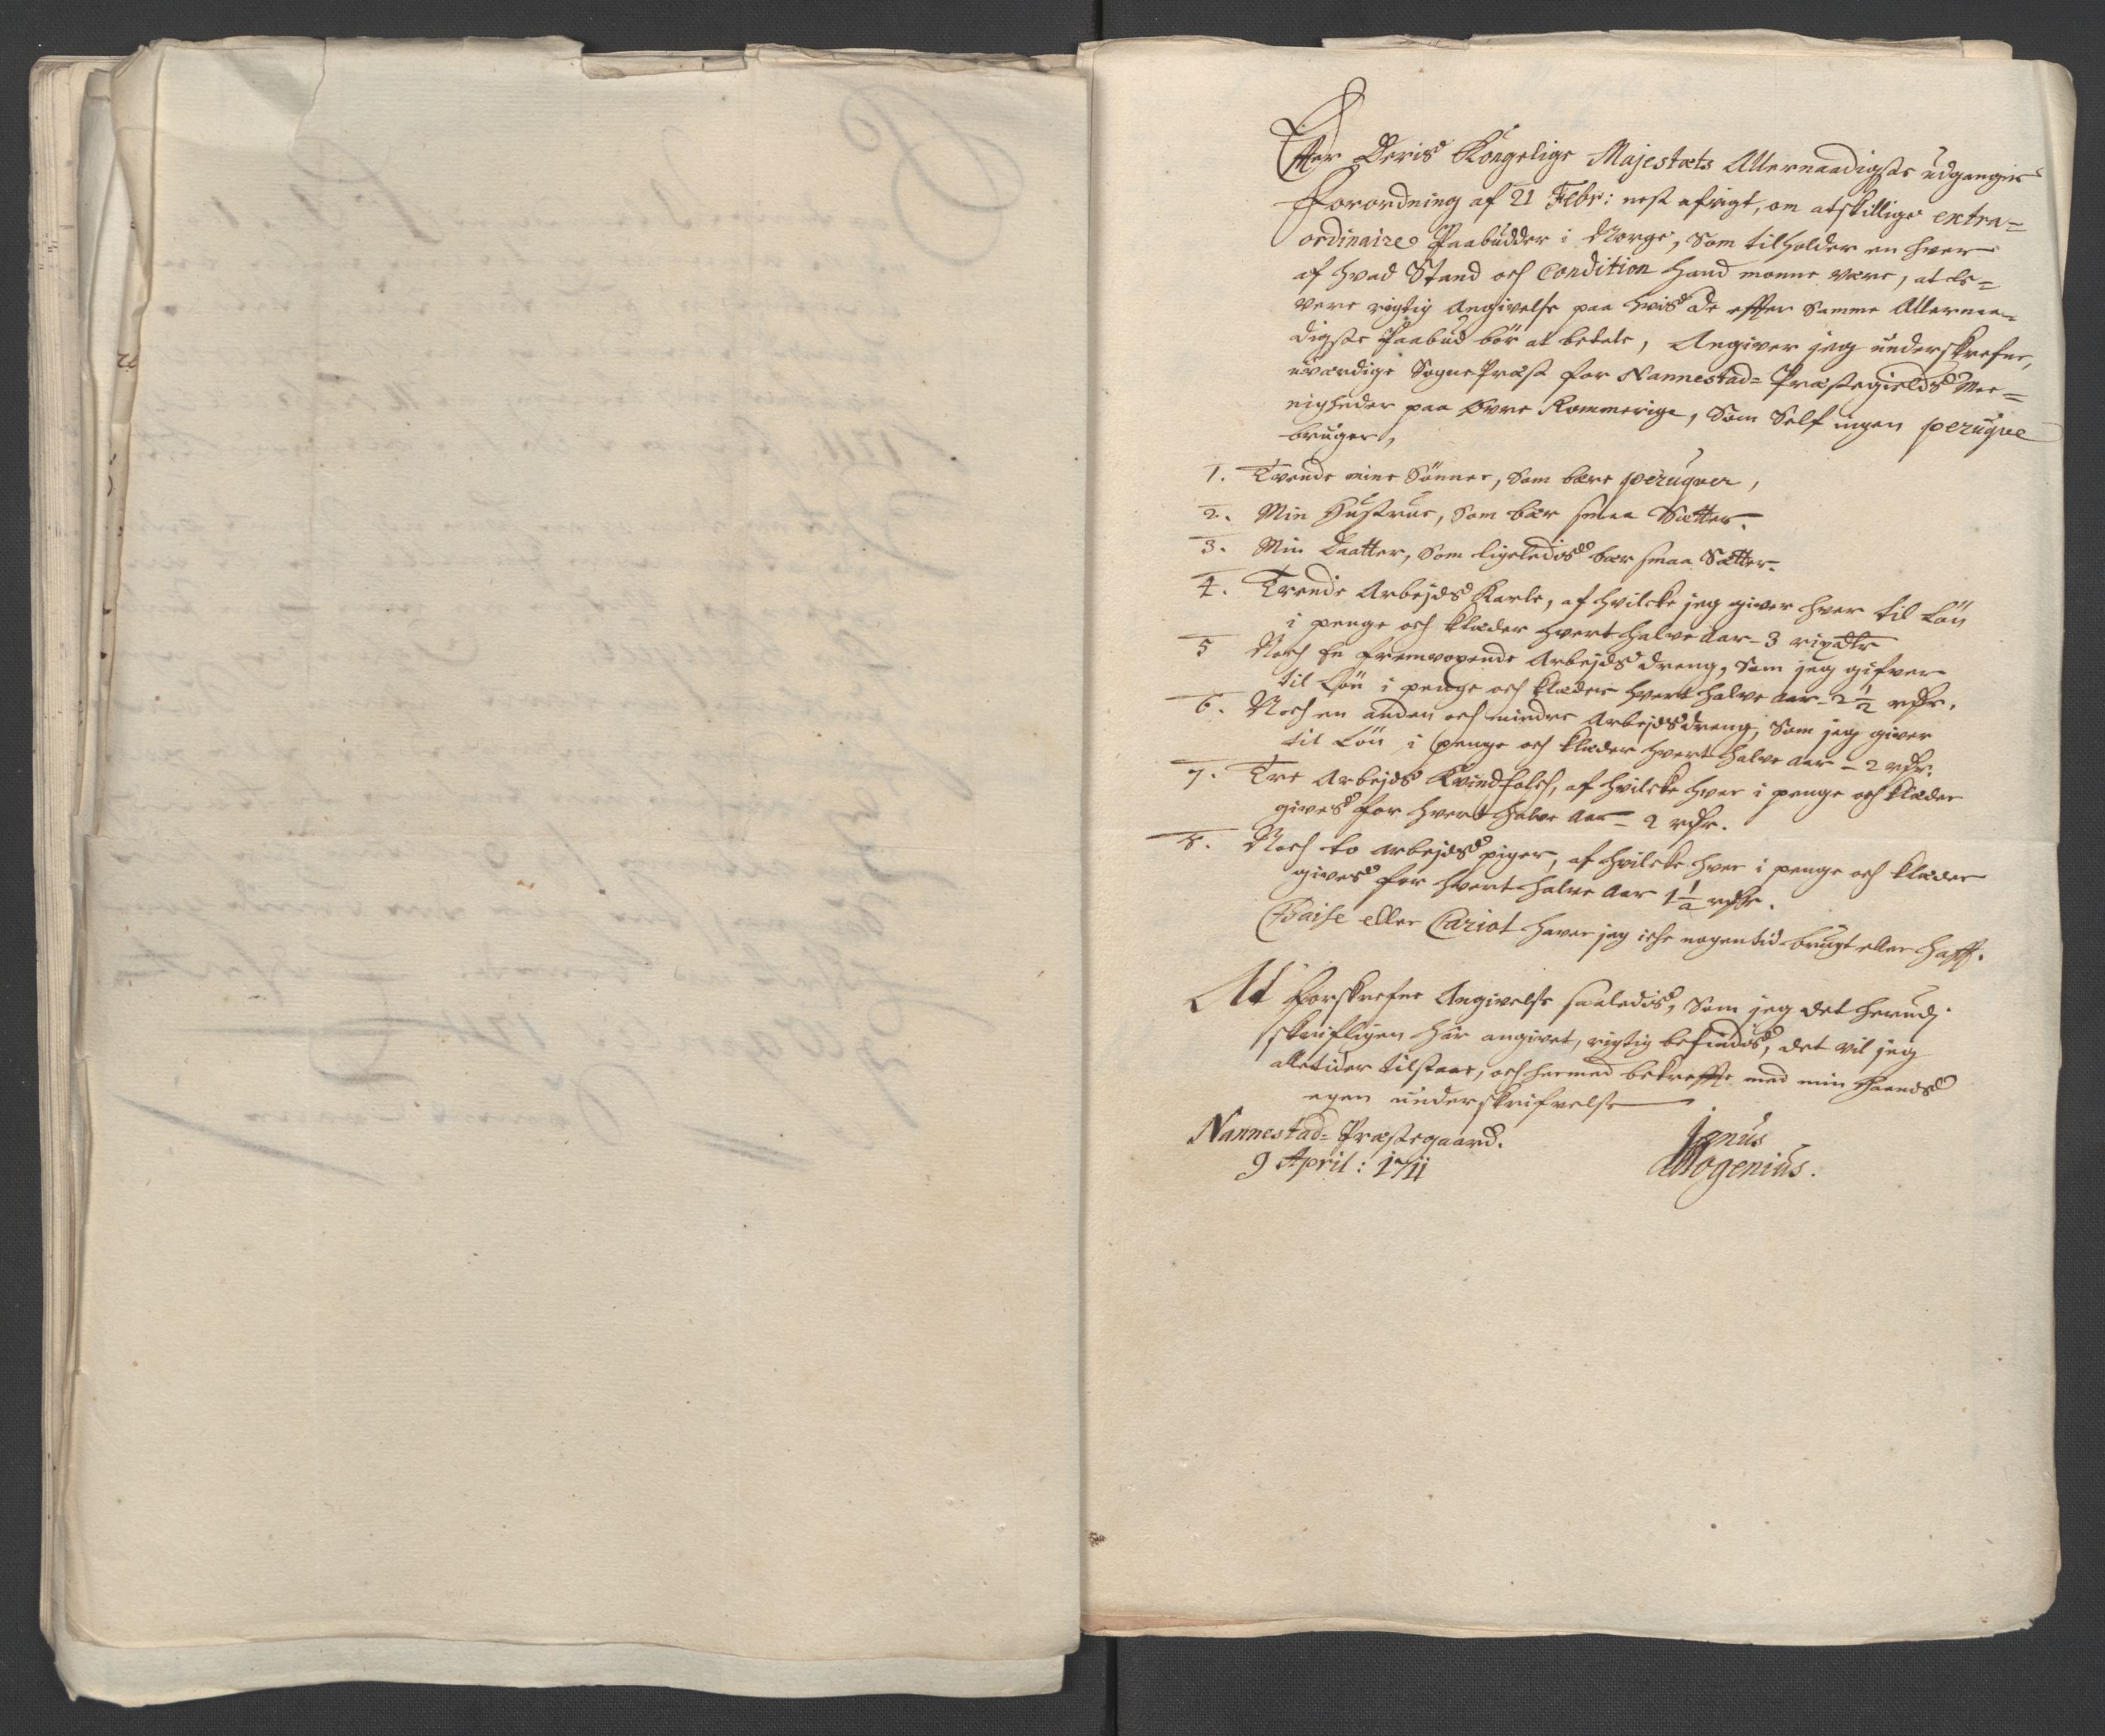 Efter Deris Kongelige Majestæts Allernaadigste udgangne
Forordning af 21 Febr: nest afvigt, om atskillige extra=
ordinaire Paabudder i Norge, Som tilholder en hver
af hvad Stand och Condition hand monne være, at le=
vere rigtig Angivelse paa hvis de effter Samme Allernaa=
digste Paabud bør at betale, Angiver jeg underskrefne,
uværdige SognePræst for Nannestad= Præstegields Me=
nigheder paa øvre Rommerige, Som Self ingen peruque
bruger,
1. Tvende mine Sönner, Som bære peruquer,
2. Min Hustrue, Som bær smaa Sætter.
3. Min Daatter, Som ligeledis bær smaa Sætter.
4. Trende Arbejds Karle, af hvilcke jeg giver hver til Løn
i penge och klæder hvert halve Aar - 3 rixdlr
5 Noch en fremvoxende Arbejds dreng, Som jeg gifver
til Løn i penge och klæder hvert halve Aar - 2 1/2 rdr.
6. Noch en anden och mindre Arbejdsdreng, Som jeg giver
til Løn i penge och klæder hvert halve Aar - 2 rdr.
7. Tre Arbejds Kvindfolch, af hvilcke hver i penge och klæder
gives for hvert halve Aar - 2 rdr.
8. Noch to arbejds piger, af hvilcke hver i penge och klæder
gives for hvert halve Aar 1 1/2 rdr.
Chaise eller Cariot haver jeg iche nogentid brugt eller hafft.
At forskrefne Angivelse saaledis, Som jeg det herudj
skrifligen här angivet, rigtig befindis, det vil jeg
alletider tilstaae, och hermed bekreffte med min Haands
egen underskrifvelse
Nannestad= Præstegaard.
9 April: 1711
Jonus
Mogenius.